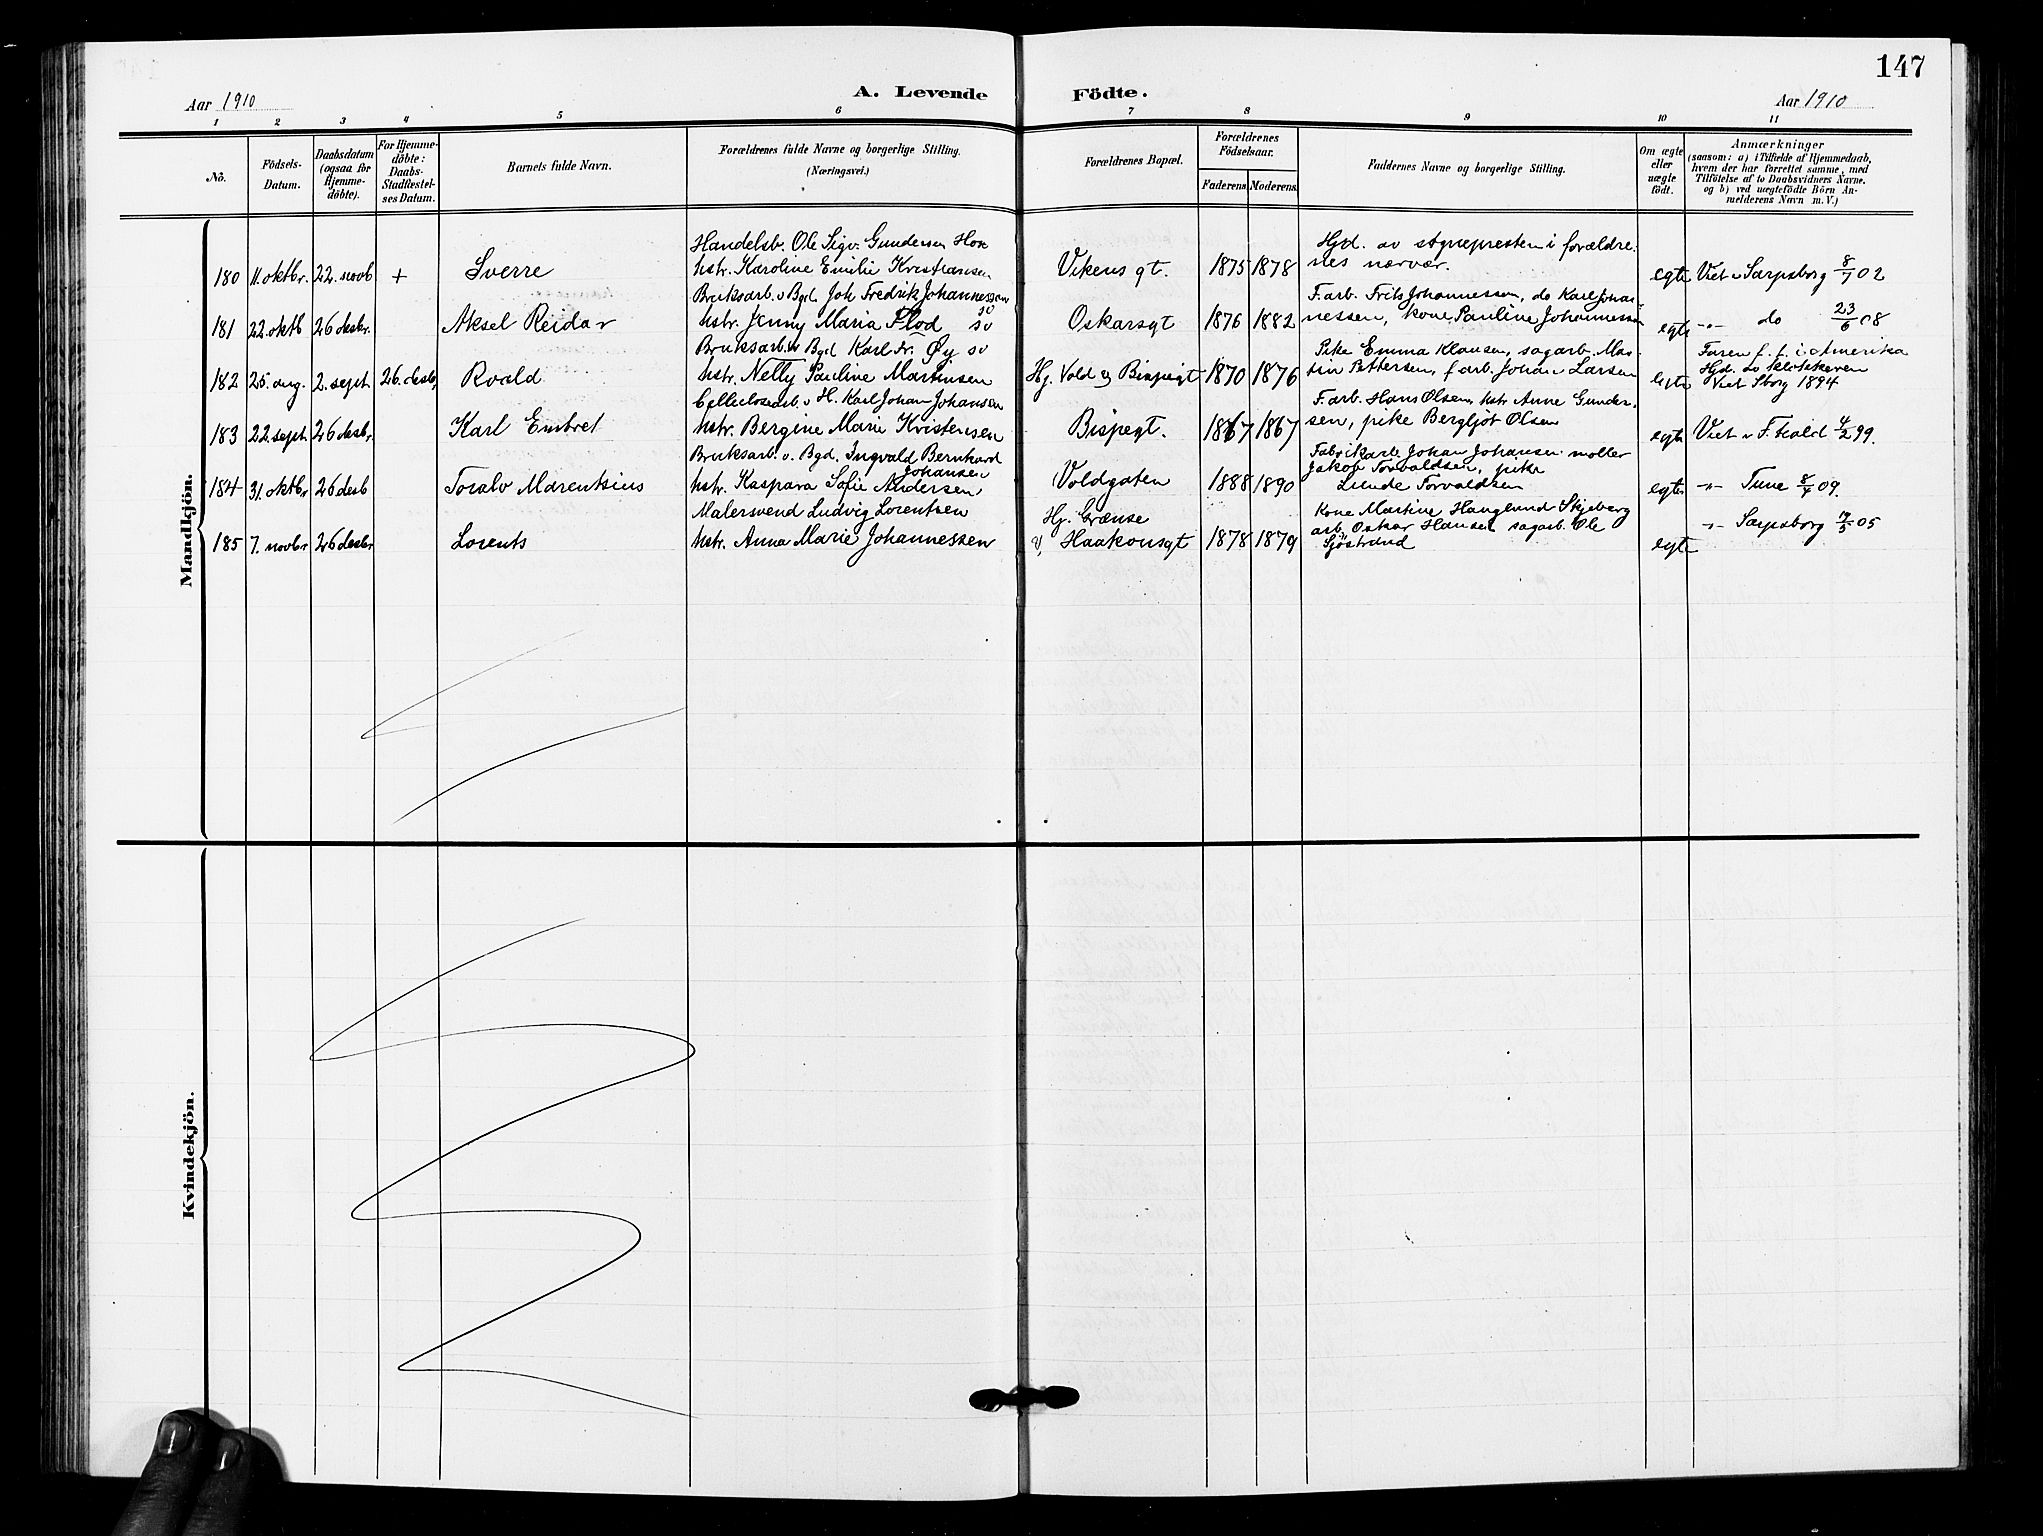 147
Aar 1910
A. Levende Födte.
Aar 1910
1 2 3 4 5 6 7 8 9 10 11
Nö.
Födsels-
Datum.
Daabsdatum
(ogsaa for
Hjemme-
döbte).
For Hjemme-
döbte:
Daabs-
Stadfæstel-
ses Datum.
Barnets fulde Navn.
Forældrenes fulde Navne og borgerlige Stilling.
(Næringsvei.)
Forældrenes Bopæl.
Forældrenes
Födselsaar.
Faderens. Moderens.
Faddernes Navne og borgerlige Stilling.
Om ægte
eller
uægte
født.
Anmærkninger
(saasom: a) i Tilfælde af Hjemmedaab,
hvem der har forrettet samme, med
Tilföielse af to Daabsvidners Navne.
og b) ved uægtefödte Börn An-
melderens Navn m. V.)
Mandkjön.
180 11. oktbr. 22. novb + Sverre
Handelsb. Ole Sigv. Gundersen
hstr. Karoline Emilie Kristiansen
Vikens gt. 1875 1878
Hjd. av sognepresten i forældre-
nes nærvær.
egte Viet i Sarpsborg 8/1 02
181 22. oktb 26 desbr. Aksel Reidar
Bruksarb. v Bgd. Joh Fredrik Johannessen
hstr. Jenny Maria Flod
Oskarsgt 1876 1882
F. arb. Frits Johannessen, do Karl Johan-
nessen, kone Pauline Johannessen
egte -"- do 23/6 08
182 25. aug. 2. sept. 26. desb. Roald
Bruksarb. v Bgd Karl Øy
hstr. Nelly Pauline Martinsen
Hj. Vold og Bispegt 1870 1876
Pike Emma Klausen, sagarb. Mar-
tin Pettersen, f arb. Johan Larsen
egte Faren f. f. i Amerika
Hjd. av klokkeren
Viet Sborg 1894
183 22. sept. 26 desbr. Karl Embret
Cellulosearb. v H. Karl Johan Johansen
hstr. Bergine Marie Kristensen
Bispegt. 1867 1867
F. arb. Hans Olsen, hstr Anne Gunder-
sen, pike Bergljot Olsen
egte Viet v F. hald 4/2 99.
184 31. oktbr 26 desb Toralv Marentsius
Bruksarb. v. Bgd. Ingvald Bernhard
Johansen
hstr. Kaspara Sofie Andersen
Voldgaten 1888 1890
Fabrikarb Johan Johansen møller
Jakob Torvaldsen, pike
Lunde Torvaldsen
egte -"- Tune 8/4 09.
185 7. novbr 26 desbr Lorents
Malersvend Ludvig Lorentsen
hstr. Anna Marie Johannessen
Hj. Grænse
v, Haakonsgt 1878 1879
Kone Martine Hauglund Skjeberg
arb. Oskar Hansen sagarb. Ole
Sjöstrand
egte -"- Sarpsborg 05
Kvindekjön.